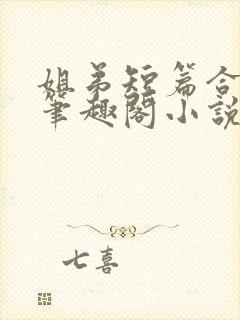 姐弟短篇合
筆趣閣小說
七喜